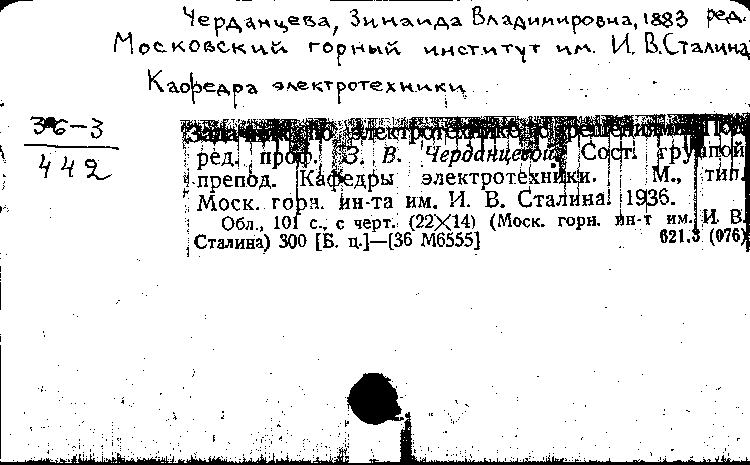 Черданцева, Зинаида Владимировна, 1883 ред.
Московский горный институт им. И. В. Сталина
Кафедра электротехники
36-3
442
Задачник по электротехнике с решениями. Под
ред. проф. З. В. Черданцевой. Сост. группой
препод. Кафедры электротехники. М., тип.
Моск. горн. ин-та им. И. В. Сталина. 1936.
Обл., 101 с., с черт. (22×14) (Моск. горн. ин-т им. И. В.
Сталина) 300 [Б. ц.]—[36 М6555] 621.3 (076)